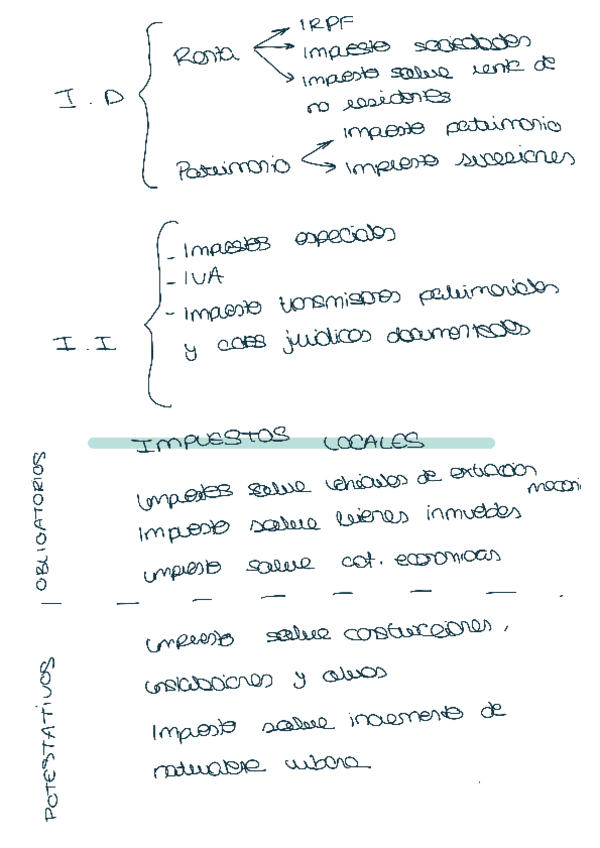 I.D
Renta
IRPF
impuesto sociedades
impuesto sobre renta de
no residentes
Patrimonio
impuesto patrimonio
impuesto sucesiones
I.I
- Impuestos especiales
- IVA
- Impuesto transmisiones patrimoniales
y actos jurídicos documentados
IMPUESTOS LOCALES
OBLIGATORIOS
impuestos sobre vehículos de extracción
mecani
impuesto sobre bienes inmuebles
impuesto sobre act. economicas
POTESTATIVOS
impuesto sobre construcciones,
instalaciones y obras
Impuesto sobre incremento de
naturaleza urbana